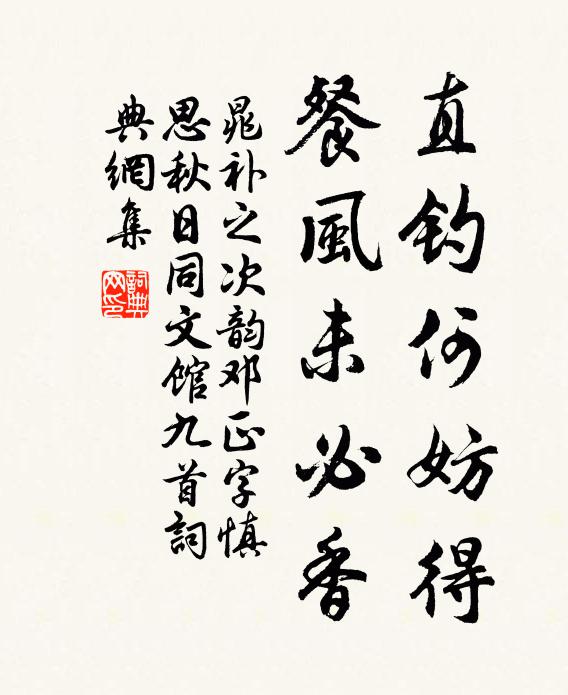 直钓何妨得
餐風未必香
晁补之次韵邓正字慎
思秋日同文馆九首詞
典網集
詞典网印